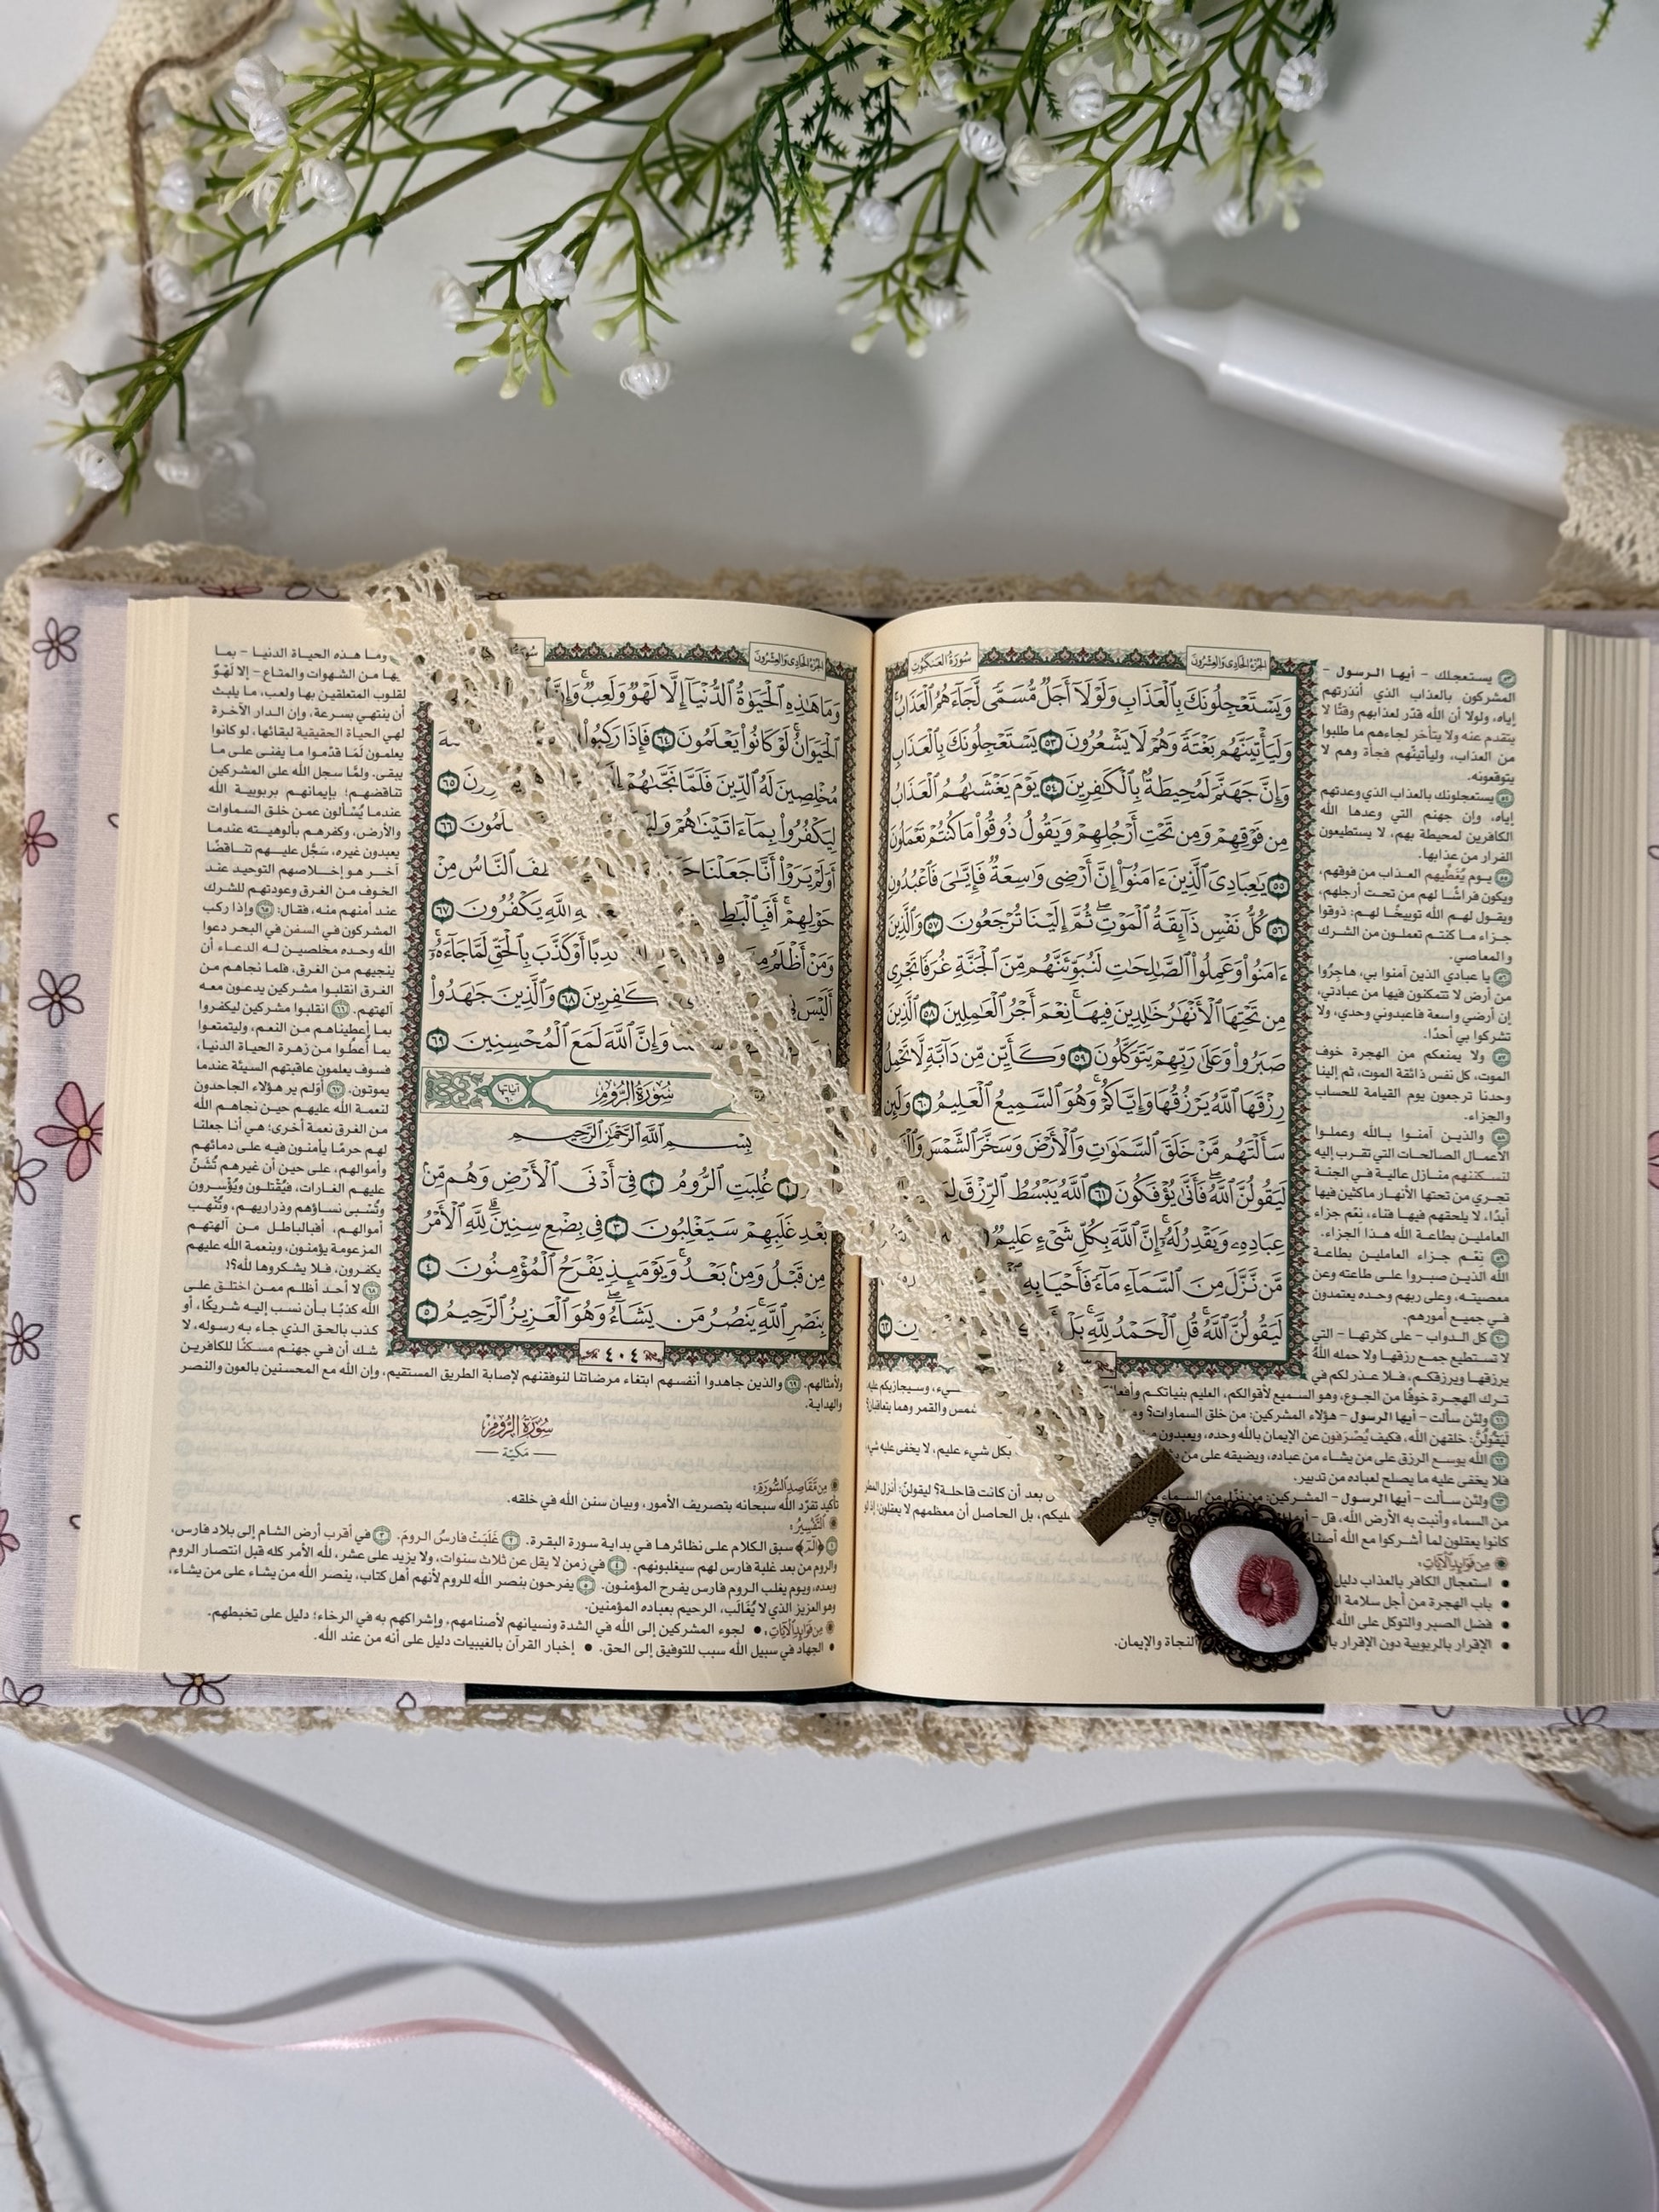 الجزء الحادي والعشرون
سورة العنكبوت
وَيَسْتَعْجِلُونَكَ بِالْعَذَابِ وَلَوْلَا أَجَلٌ مُّسَمًّى لَّجَاءَهُمُ الْعَذَابُ
وَلَيَأْتِيَنَّهُم بَغْتَةً وَهُمْ لَا يَشْعُرُونَ ٥٣ يَسْتَعْجِلُونَكَ بِالْعَذَابِ
وَإِنَّ جَهَنَّمَ لَمُحِيطَةٌ بِالْكَافِرِينَ ٥٤ يَوْمَ يَغْشَاهُمُ الْعَذَابُ
مِن فَوْقِهِمْ وَمِن تَحْتِ أَرْجُلِهِمْ وَيَقُولُ ذُوقُوا مَا كُنتُمْ تَعْمَلُونَ
٥٥ يَاعِبَادِيَ الَّذِينَ ءَامَنُوا إِنَّ أَرْضِي وَاسِعَةٌ فَإِيَّايَ فَاعْبُدُونِ
٥٦ كُلُّ نَفْسٍ ذَائِقَةُ الْمَوْتِ ثُمَّ إِلَيْنَا تُرْجَعُونَ ٥٧ وَالَّذِينَ
ءَامَنُوا وَعَمِلُوا الصَّالِحَاتِ لَنُبَوِّئَنَّهُم مِّنَ الْجَنَّةِ غُرَفًا تَجْرِي
مِن تَحْتِهَا الْأَنْهَارُ خَالِدِينَ فِيهَا نِعْمَ أَجْرُ الْعَامِلِينَ ٥٨ الَّذِينَ
صَبَرُوا وَعَلَى رَبِّهِمْ يَتَوَكَّلُونَ ٥٩ وَكَأَيِّن مِّن دَابَّةٍ لَّا تَحْمِلُ
رِزْقَهَا اللَّهُ يَرْزُقُهَا وَإِيَّاكُمْ وَهُوَ السَّمِيعُ الْعَلِيمُ ٦٠ وَلَئِن
سَأَلْتَهُم مَّنْ خَلَقَ السَّمَاوَاتِ وَالْأَرْضَ وَسَخَّرَ الشَّمْسَ
لَيَقُولُنَّ اللَّهُ فَأَنَّى يُؤْفَكُونَ ٦١ اللَّهُ يَبْسُطُ الرِّزْقَ
عِبَادِهِ وَيَقْدِرُ لَهُ إِنَّ اللَّهَ بِكُلِّ شَيْءٍ عَلِيمٌ
مَّن نَّزَّلَ مِنَ السَّمَاءِ مَاءً فَأَحْيَا بِهِ
لَيَقُولُنَّ اللَّهُ قُلِ الْحَمْدُ لِلَّهِ بَلْ ٦٣
٥٣ يستعجلك - أيها الرسول -
المشركون بالعذاب الذي أنذرتهم
إياه، ولولا أن الله قدّر لعذابهم وقتًا لا
يتقدم عنه ولا يتأخر لجاءهم ما طلبوا
من العذاب، وليأتينّهم فجأة وهم لا
يتوقعونه.
٥٤ يستعجلونك بالعذاب الذي وعدتهم
إياه، وإن جهنم التي وعدها الله
الكافرين لمحيطة بهم، لا يستطيعون
الفرار من عذابها.
٥٥ يوم يُغطّيهم العذاب من فوقهم،
ويكون فراشًا لهم من تحت أرجلهم،
ويقول لهم الله توبيخًا لهم: ذوقوا
جزاء ما كنتم تعملون من الشرك
والمعاصي.
٥٦ يا عبادي الذين آمنوا بي، هاجِرُوا
من أرض لا تتمكنون فيها من عبادتي،
إن أرضي واسعة فاعبدوني وحدي، ولا
تشركوا بي أحدًا.
٥٧ ولا يمنعكم من الهجرة خوف
الموت، كل نفس ذائقة الموت، ثم إلينا
وحدنا ترجعون يوم القيامة للحساب
والجزاء.
٥٨ والذين آمنوا بالله وعملوا
الأعمال الصالحات التي تقرب إليه
لنسكننهم منازل عالية في الجنة
تجري من تحتها الأنهار ماكثين فيها
أبدًا، لا يلحقهم فيها فناء، نعْم جزاء
العاملين بطاعة الله هذا الجزاء.
٥٩ نعْم جزاء العاملين بطاعة
الله الذين صبروا على طاعته وعن
معصيته، وعلى ربهم وحده يعتمدون
في جميع أمورهم.
٦٠ كل الدواب - على كثرتها - التي
لا تستطيع جمع رزقها ولا حمله الله
يرزقها ويرزقكم، فلا عذر لكم في
ترك الهجرة خوفًا من الجوع، وهو السميع لأقوالكم، العليم بنياتكم وسيجازيكم عليه
٦١ ولئن سألت - أيها الرسول - هؤلاء المشركين: من خلق السماوات؟ الشمس والقمر وهما يتعاقبان؟
ليَقولُنَّ: خلقهن الله، فكيف يُصْرَفون عن الإيمان بالله وحده، ويعبدون
٦٢ الله يوسع الرزق على من يشاء من عباده، ويضيقه على من بكل شيء عليم، لا يخفى عليه
فلا يخفى عليه ما يصلح لعباده من تدبير.
٦٣ ولئن سألت - أيها الرسول - المشركين: من نزّل من السماء بعد أن كانت قاحلة؟ ليقولنّ: أنزل
من السماء وأنبت به الأرض الله، قل عليكم، بل الحاصل أن معظمهم لا يعقلون؛
كانوا يعقلون لما أشركوا مع الله
مِن فَوَائِدِ الْآيَاتِ:
• استعجال الكافر بالعذاب دليل
• باب الهجرة من أجل سلامة
• فضل الصبر والتوكل على الله
• الإقرار بالربوبية دون الإقرار النجاة والإيمان.
الجزء الحادي والعشرون
وَمَا هَذِهِ الْحَيَاةُ الدُّنْيَا إِلَّا لَهْوٌ وَلَعِبٌ وَإِنَّ
الْحَيَوَانُ لَوْ كَانُوا يَعْلَمُونَ ٦٤ فَإِذَا رَكِبُوا
مُخْلِصِينَ لَهُ الدِّينَ فَلَمَّا نَجَّاهُمْ ٦٥
لِيَكْفُرُوا بِمَا ءَاتَيْنَاهُمْ ٦٦
أَوَلَمْ يَرَوْا أَنَّا جَعَلْنَا النَّاسُ مِنْ
حَوْلِهِمْ اللَّهِ يَكْفُرُونَ ٦٧
وَمَنْ أَظْلَمُ أَوْ كَذَّبَ بِالْحَقِّ لَمَّا جَاءَهُ
أَلَيْسَ ٦٨ وَالَّذِينَ جَاهَدُوا
وَإِنَّ اللَّهَ لَمَعَ الْمُحْسِنِينَ ٦٩
سُورَةُ الرُّومِ آياتها ٦٠
بِسْمِ اللَّهِ الرَّحْمَنِ الرَّحِيمِ
١ غُلِبَتِ الرُّومُ ٢ فِي أَدْنَى الْأَرْضِ وَهُم مِّن
بَعْدِ غَلَبِهِمْ سَيَغْلِبُونَ ٣ فِي بِضْعِ سِنِينَ لِلَّهِ الْأَمْرُ
مِن قَبْلُ وَمِن بَعْدُ وَيَوْمَئِذٍ يَفْرَحُ الْمُؤْمِنُونَ ٤
بِنَصْرِ اللَّهِ يَنصُرُ مَن يَشَاءُ وَهُوَ الْعَزِيزُ الرَّحِيمُ ٥
٤٠٤
وما هذه الحياة الدنيا - بما
فيها من الشهوات والمتاع - إلا لَهْوٌ
لقلوب المتعلقين بها ولعب، ما يلبث
أن ينتهي بسرعة، وإن الدار الآخرة
لهي الحياة الحقيقية لبقائها، لو كانوا
يعلمون لَمَا قدّموا ما يفنى على ما
يبقى. ولمَّا سجل الله على المشركين
تناقضهم؛ بإيمانهم بربوبية الله
عندما يُسْألون عمن خلق السماوات
والأرض، وكفرهم بألوهيته عندما
يعبدون غيره، سَجَّل عليهم تناقضًا
آخر هو إخلاصهم التوحيد عند
الخوف من الغرق وعودتهم للشرك
عند أمنهم منه، فقال: ٦٥ وإذا ركب
المشركون في السفن في البحر دعوا
الله وحده مخلصين له الدعاء أن
ينجيهم من الغرق، فلما نجاهم من
الغرق انقلبوا مشركين يدعون معه
آلهتهم. ٦٦ انقلبوا مشركين ليكفروا
بما أعطيناهم من النعم، وليتمتعوا
بما أُعطُوا من زهرة الحياة الدنيا،
فسوف يعلمون عاقبتهم السيئة عندما
يموتون. ٦٧ أوَلم ير هؤلاء الجاحدون
لنعمة الله عليهم حين نجاهم الله
من الغرق نعمة أخرى؛ هي أنا جعلنا
لهم حرمًا يأمنون فيه على دمائهم
وأموالهم، على حين أن غيرهم تُشَنّ
عليهم الغارات، فيُقْتلون ويُؤْسرون
وتُسْبى نساؤهم وذراريهم، وتُنْهب
أموالهم، أفبالباطل من آلهتهم
المزعومة يؤمنون، وبنعمة الله عليهم
يكفرون، فلا يشكروها لله؟!
٦٨ لا أحد أظلم ممن اختلق على
الله كذبًا بأن نسب إليه شريكًا، أو
كذب بالحق الذي جاء به رسوله، لا
شك أن في جهنم مسكنًا للكافرين
ولأمثالهم. ٦٩ والذين جاهدوا أنفسهم ابتغاء مرضاتنا لنوفقنهم لإصابة الطريق المستقيم، وإن الله مع المحسنين بالعون والنصر
والهداية.
سُورَةُ الرُّومِ
مَكيّة
مِن مَّقَاصِدِ السُّورَةِ:
تأكيد تفرّد الله سبحانه بتصريف الأمور، وبيان سنن الله في خلقه.
التَّفْسِيرُ:
١ ﴿الٓمٓ﴾ سبق الكلام على نظائرها في بداية سورة البقرة. ٢ غَلَبَتْ فارسُ الرومَ. ٣ في أقرب أرض الشام إلى بلاد فارس،
والروم من بعد غلبة فارس لهم سيغلبونهم. ٤ في زمن لا يقل عن ثلاث سنوات، ولا يزيد على عشر، لله الأمر كله قبل انتصار الروم
وبعده، ويوم يغلب الروم فارس يفرح المؤمنون. ٥ يفرحون بنصر الله للروم لأنهم أهل كتاب، ينصر الله من يشاء على من يشاء،
وهو العزيز الذي لا يُغَالَب، الرحيم بعباده المؤمنين.
مِن فَوَائِدِ الْآيَاتِ: • لجوء المشركين إلى الله في الشدة ونسيانهم لأصنامهم، وإشراكهم به في الرخاء؛ دليل على تخبطهم.
• الجهاد في سبيل الله سبب للتوفيق إلى الحق. • إخبار القرآن بالغيبيات دليل على أنه من عند الله.